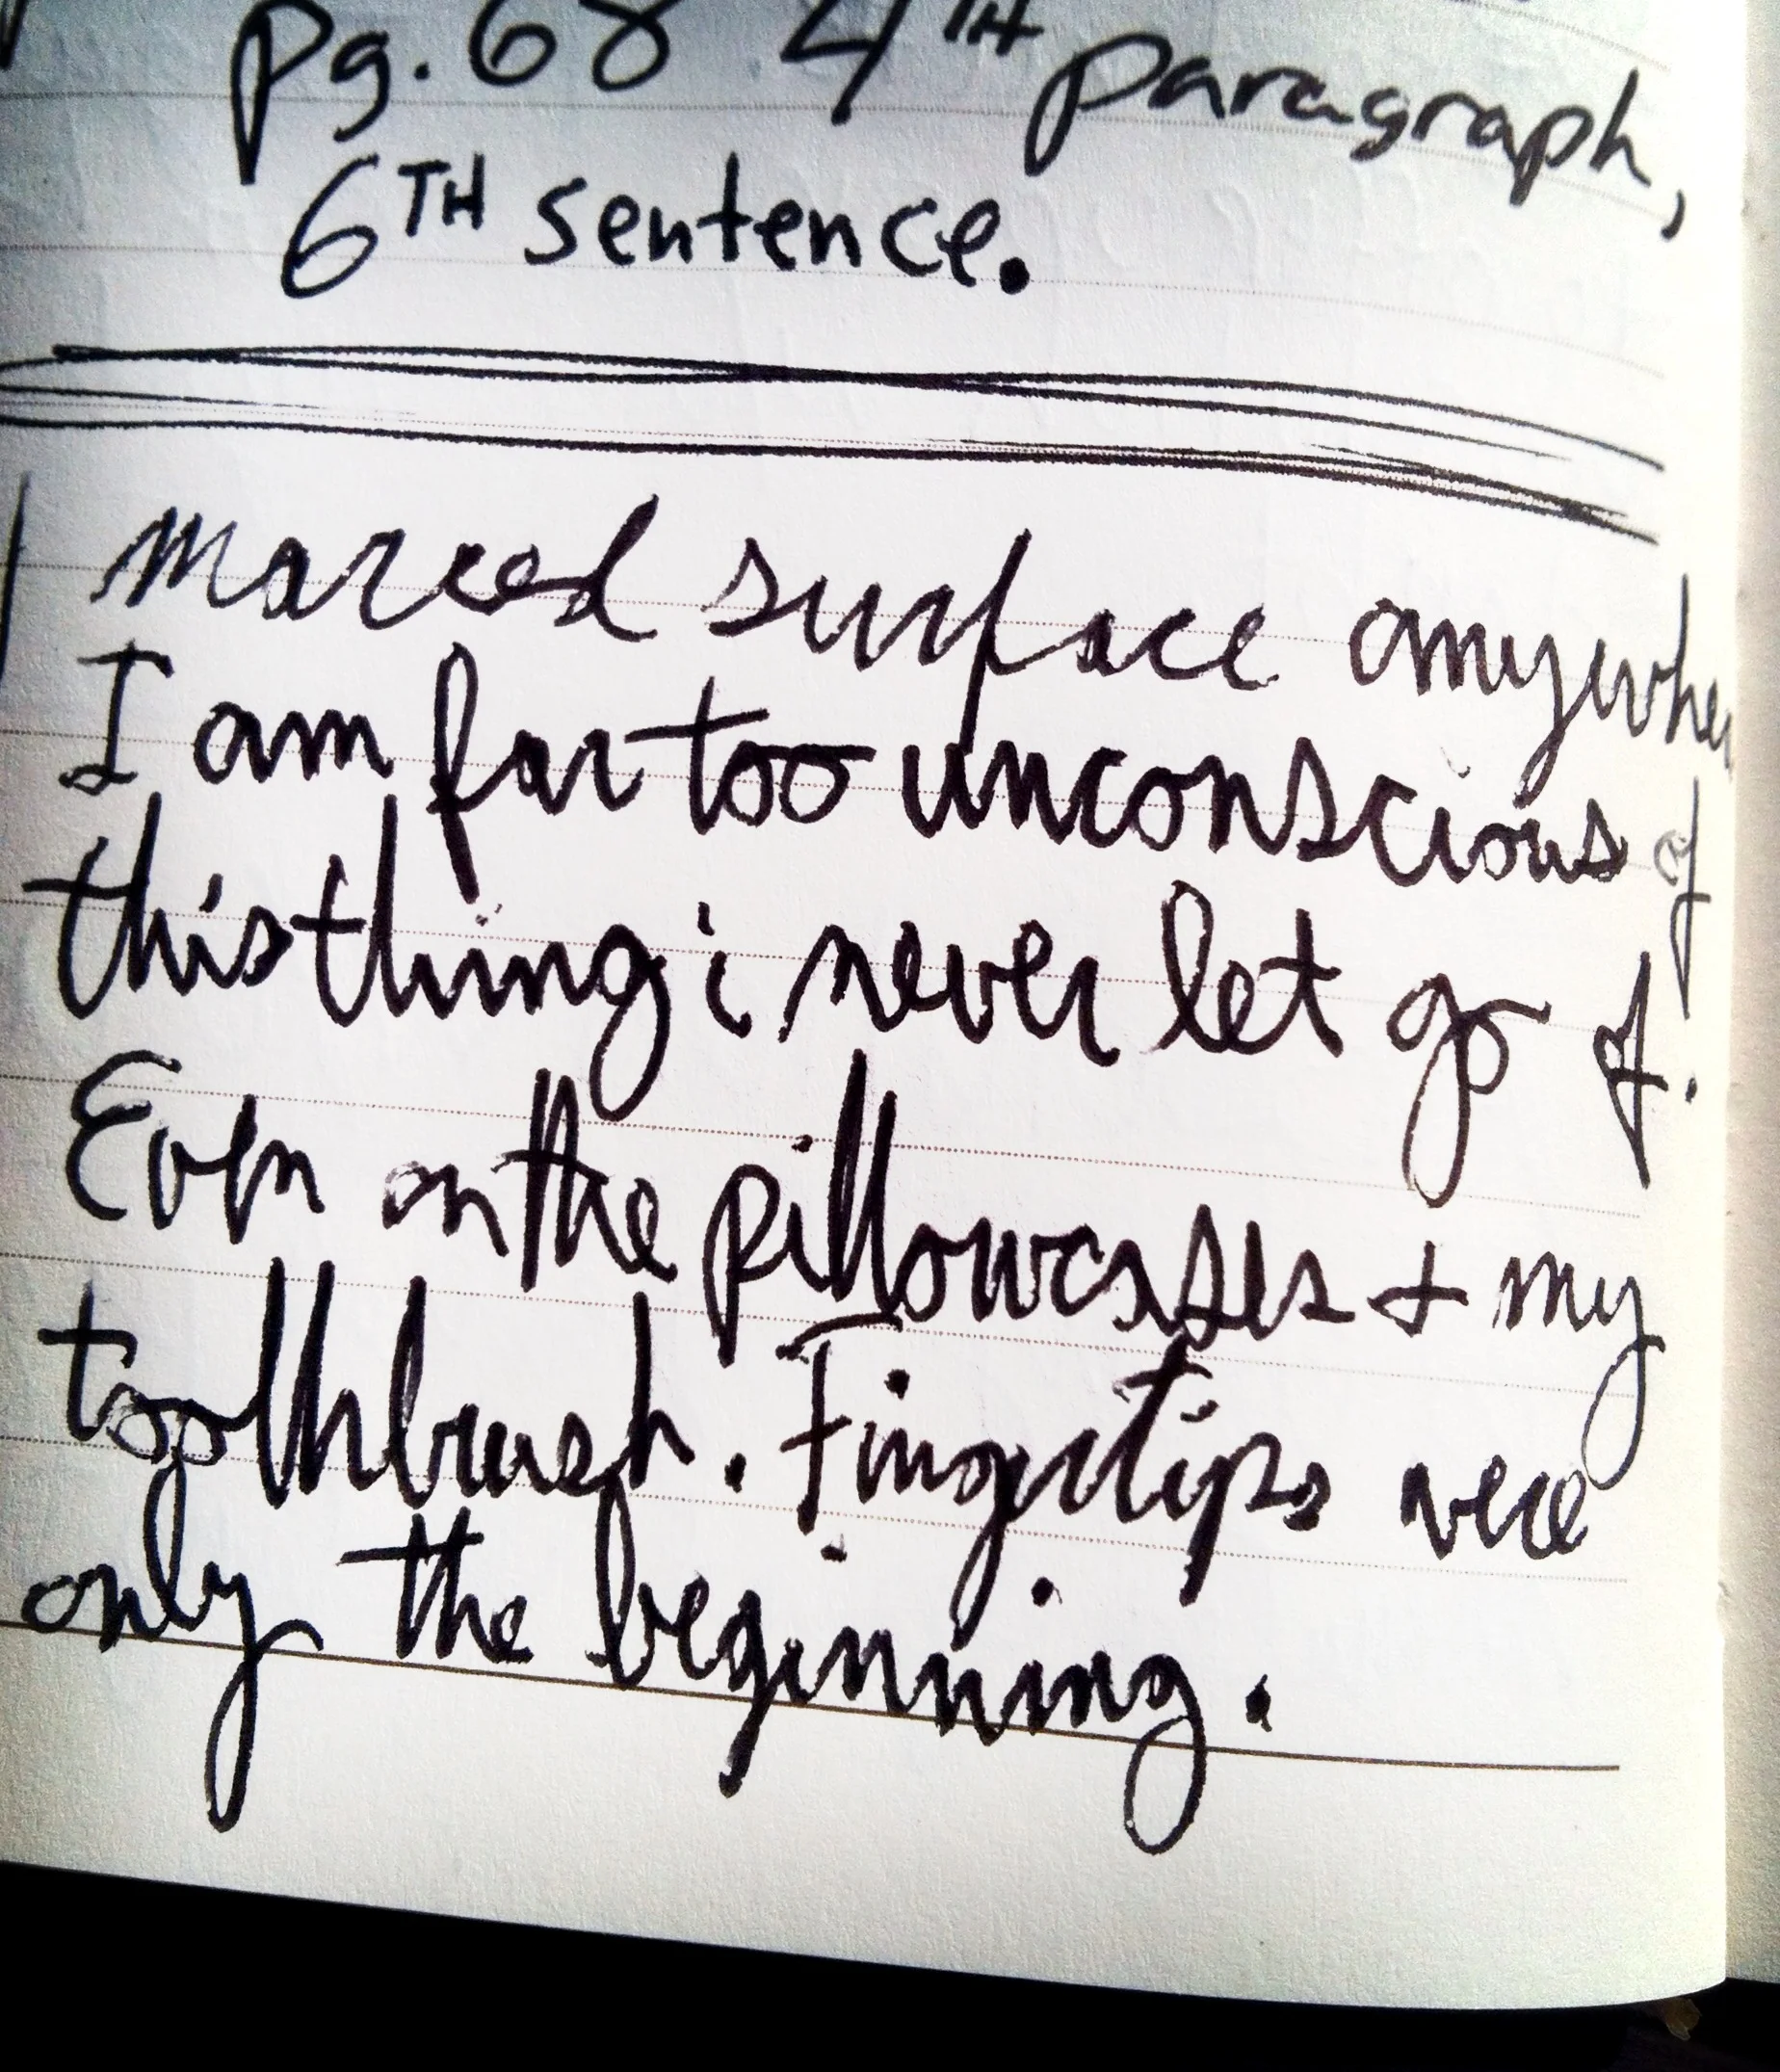 pg. 68 4TH paragraph,
6TH sentence.
marred surface anywhe
I am far too unconscious of
this thing i never let go of.
Even on the pillowcases + my
toothbrush. Fingertips were
only the beginning.